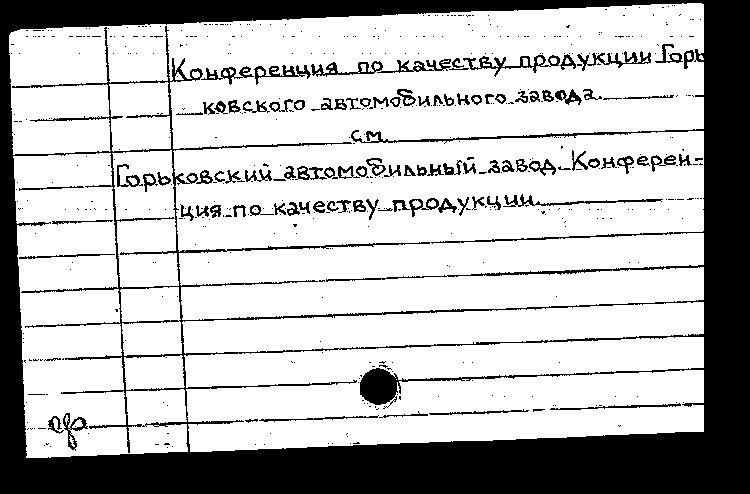 Конференция по качеству продукции Горь
ковского автомобильного завода.
см.
Горьковский автомобильный завод. Конферен-
ция по качеству продукции.